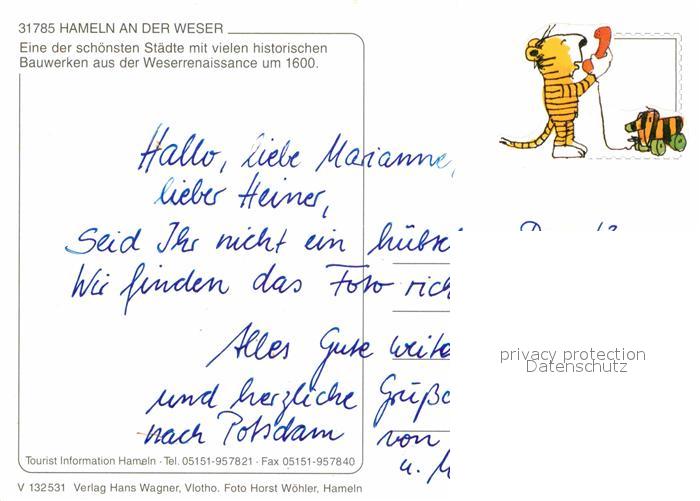 31785 HAMELN AN DER WESER
Eine der schönsten Städte mit vielen historischen
Bauwerken aus der Weserrenaissance um 1600.
Hallo, liebe Marianne,
lieber Heiner,
Seid Ihr nicht ein hübsc
Wir finden das Foto rich
Alles Gute weite
und herzliche Grüße
nach Potsdam von
u. M
privacy protection
Datenschutz
Tourist Information Hameln · Tel. 05151-957821 · Fax 05151-957840
V 132531 Verlag Hans Wagner, Vlotho. Foto Horst Wöhler, Hameln